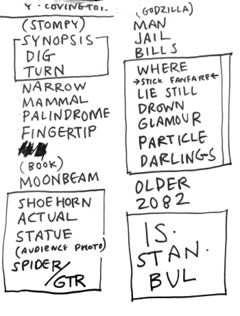 Y. COVINGTON.
(STOMPY)
SYNOPSIS
DIG
TURN
NARROW
MAMMAL
PALINDROME
FINGERTIP
(BOOK)
MOONBEAM
SHOEHORN
ACTUAL
STATUE
(AUDIENCE PHOTO)
SPIDER/GTR
(GODZILLA)
MAN
JAIL
BILLS
WHERE
→STICK FANFARE←
LIE STILL
DROWN
GLAMOUR
PARTICLE
DARLINGS
OLDER
2082
IS.
STAN.
BUL